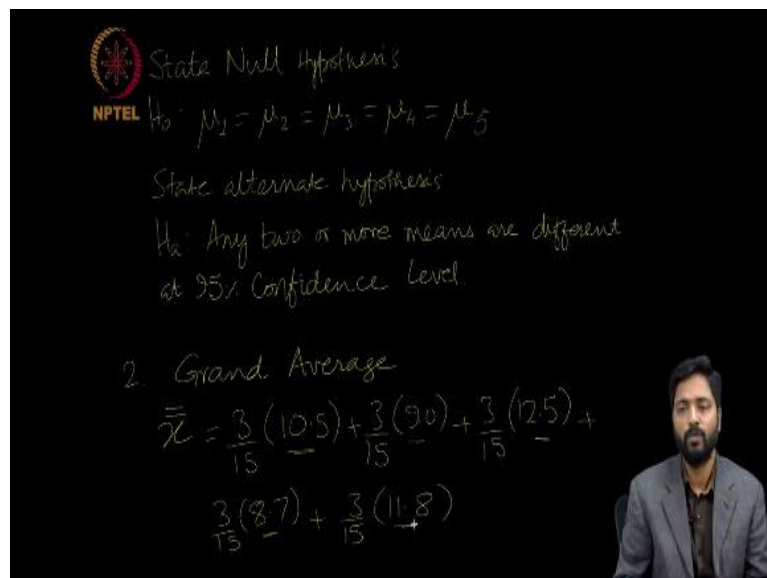 State Null Hypothesis
NPTEL
H₀: μ₁ = μ₂ = μ₃ = μ₄ = μ₅
State alternate hypothesis
Hₐ: Any two or more means are different
at 95% Confidence Level.
2. Grand Average
x̿ = 3/15 (10.5) + 3/15 (9.0) + 3/15 (12.5) +
3/15 (8.7) + 3/15 (11.8)